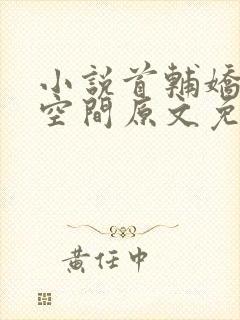 小說首輔嬌
空間原文免
黃任中